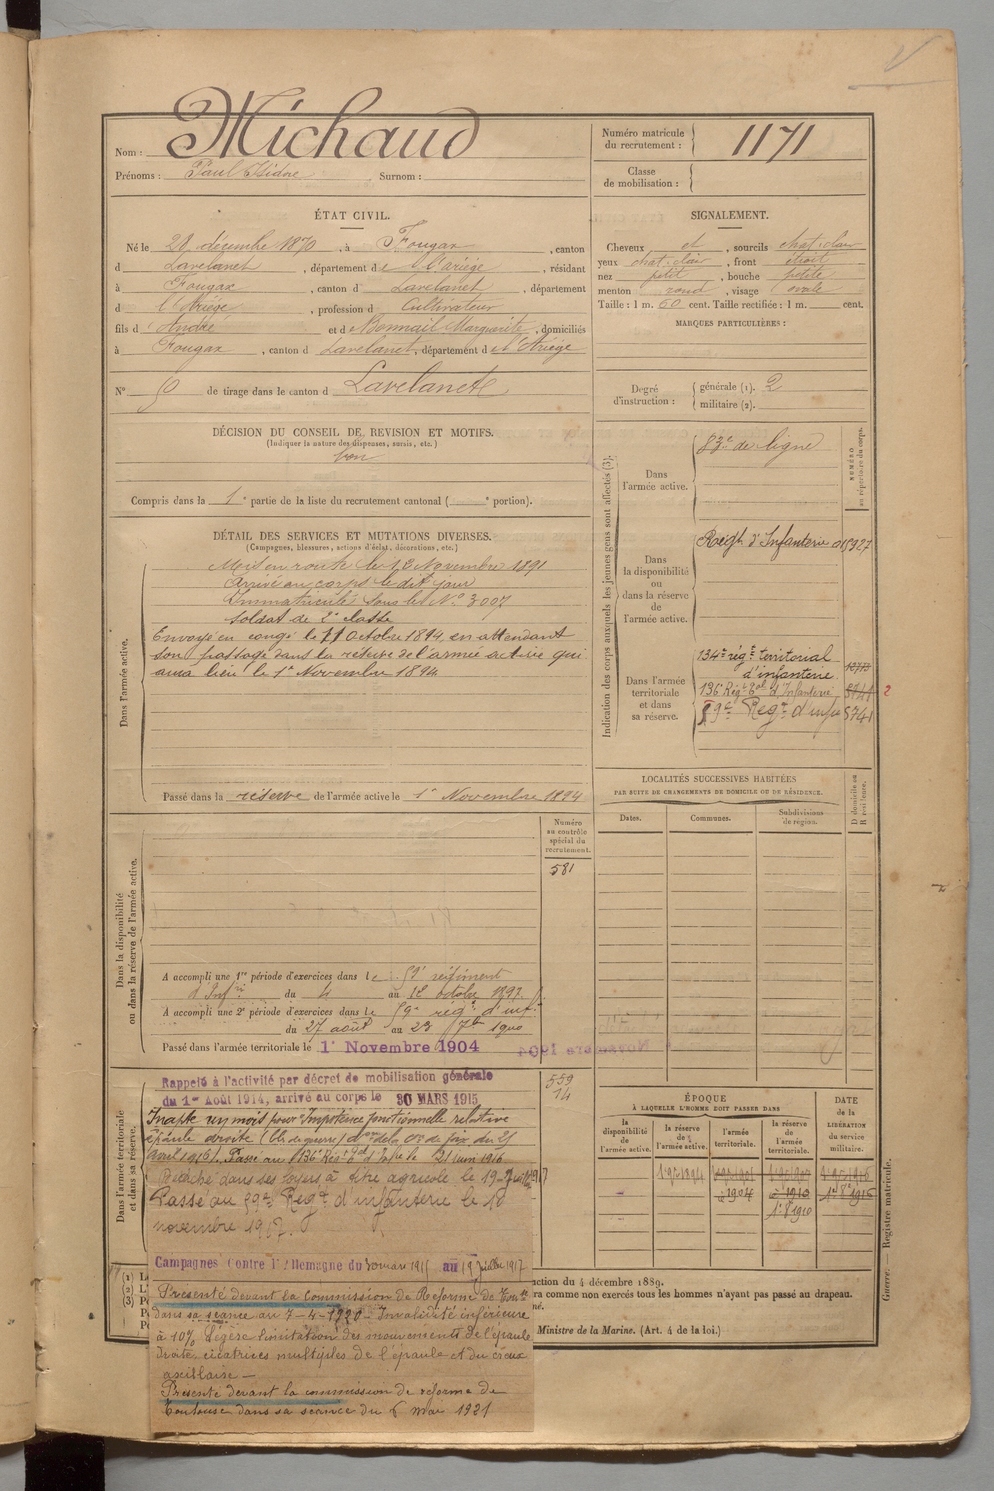 Nom : Michaud
Prénoms : Paul Isidore Surnom :
Numéro matricule
du recrutement : 1171
Classe
de mobilisation :
ÉTAT CIVIL.
Né le 28 décembre 1870, à Fougax, canton
d Lavelanet, département de l'Ariège, résidant
à Fougax, canton d Lavelanet, département
d l'Ariège, profession d Cultivateur
fils d André et d Bonnail Marguerite, domiciliés
à Fougax, canton d Lavelanet, département de l'Ariège
N° 50 de tirage dans le canton d Lavelanet
SIGNALEMENT.
Cheveux et, sourcils chat. clair
yeux chat. clair, front étroit
nez petit, bouche petite
menton rond, visage ovale
Taille : 1 m. 60 cent. Taille rectifiée : 1 m. cent.
MARQUES PARTICULIÈRES :
Degré
d'instruction :
générale (1). 2
militaire (2).
DÉCISION DU CONSEIL DE REVISION ET MOTIFS.
(Indiquer la nature des dispenses, sursis, etc.)
bon
Compris dans la 1e partie de la liste du recrutement cantonal ( e portion).
DÉTAIL DES SERVICES ET MUTATIONS DIVERSES.
(Campagnes, blessures, actions d'éclat, décorations, etc.)
Dans l'armée active.
Mis en route le 12 Novembre 1891
Arrivé au corps le dit jour
Immatriculé sous le N° 3007
Soldat de 2e classe
Envoyé en congé le 11 Octobre 1894, en attendant
son passage dans la réserve de l'armée active qui
aura lieu le 1er Novembre 1894
Passé dans la réserve de l'armée active le 1er Novembre 1894
Indication des corps auxquels les jeunes gens sont affectés (3).
NUMÉRO
au répertoire du corps.
Dans
l'armée active.
83e de ligne
Dans
la disponibilité
ou
dans la réserve
de
l'armée active.
Régt d'Infanterie 015927
Dans l'armée
territoriale
et dans
sa réserve.
134e régt territorial
d'infanterie
136e Régt Tal d'Infanterie
59e Régt d'infie 5741
2
LOCALITÉS SUCCESSIVES HABITÉES
PAR SUITE DE CHANGEMENTS DE DOMICILE OU DE RÉSIDENCE.
Dates.
Communes.
Subdivisions
de région.
D domicile ou
R résidence.
Dans la disponibilité
ou dans la réserve de l'armée active.
Numéro
au contrôle
spécial du
recrutement.
581
A accompli une 1re période d'exercices dans le 59e régiment
d'Infie du 4 au 1er octobre 1897.
A accompli une 2e période d'exercices dans le 59e régt d'inf.
du 27 août au 23 7bre 1900
Passé dans l'armée territoriale le 1er Novembre 1904
Dans l'armée territoriale
et dans sa réserve.
559
14
Rappelé à l'activité par décret de mobilisation générale
du 1er Août 1914, arrivé au corps le 30 MARS 1915
Inapte un mois pour Impotence fonctionnelle relative
épaule droite (bl. de guerre) don de la con de Foix du 25
avril 1916. Passé au 136e Régt Tal d'Infie le 21 juin 1916
Détaché dans ses foyers à titre agricole le 19-7bre 1917
Passé au 59e Régt d'infanterie le 18
novembre 1917.
Campagnes Contre l'Allemagne du 30 mars 1915 au 19 juillet 1917
Présenté devant la Commission de Réforme de Foix
dans sa séance du 7-4-1920. Invalidité inférieure
à 10% Légère limitation des mouvements de l'épaule
droite, cicatrices multiples de l'épaule et du creux
axillaire —
Présenté devant la commission de réforme de
Toulouse dans sa séance du 6 mai 1921
ÉPOQUE
À LAQUELLE L'HOMME DOIT PASSER DANS
la
disponibilité
de
l'armée active.
la réserve
de
l'armée active.
l'armée
territoriale.
la réserve
de
l'armée
territoriale.
DATE
de la
LIBÉRATION
du service
militaire.
1er 9bre 1894
1er 9bre 1904
1er 8 1910
ction du 4 décembre 1889.
ra comme non exercés tous les hommes n'ayant pas passé au drapeau.
né.
Ministre de la Marine. (Art. 4 de la loi.)
(1)
(2)
(3)
Guerre. — Registre matricule.